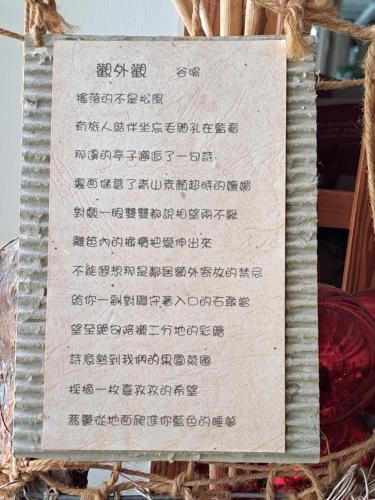 觀外觀 谷暘
搖落的不是松風
有旅人結伴坐忘毛細孔在監看
那邊的亭子邂逅了一句詩
裏面儲蓄了青山素顏超時的嫵媚
對戲一眼雙雙都說相望兩不厭
籬笆內的橄欖把愛伸出來
不能遐想那是鄰居額外寄放的禁忌
給你一副對聯守著入口的石敢當
望至絕句陪襯三分地的彩繪
詩意熱到我們的果園菜圃
採摘一枚喜孜孜的希望
蓊鬱從地面爬進你藍色的睡夢